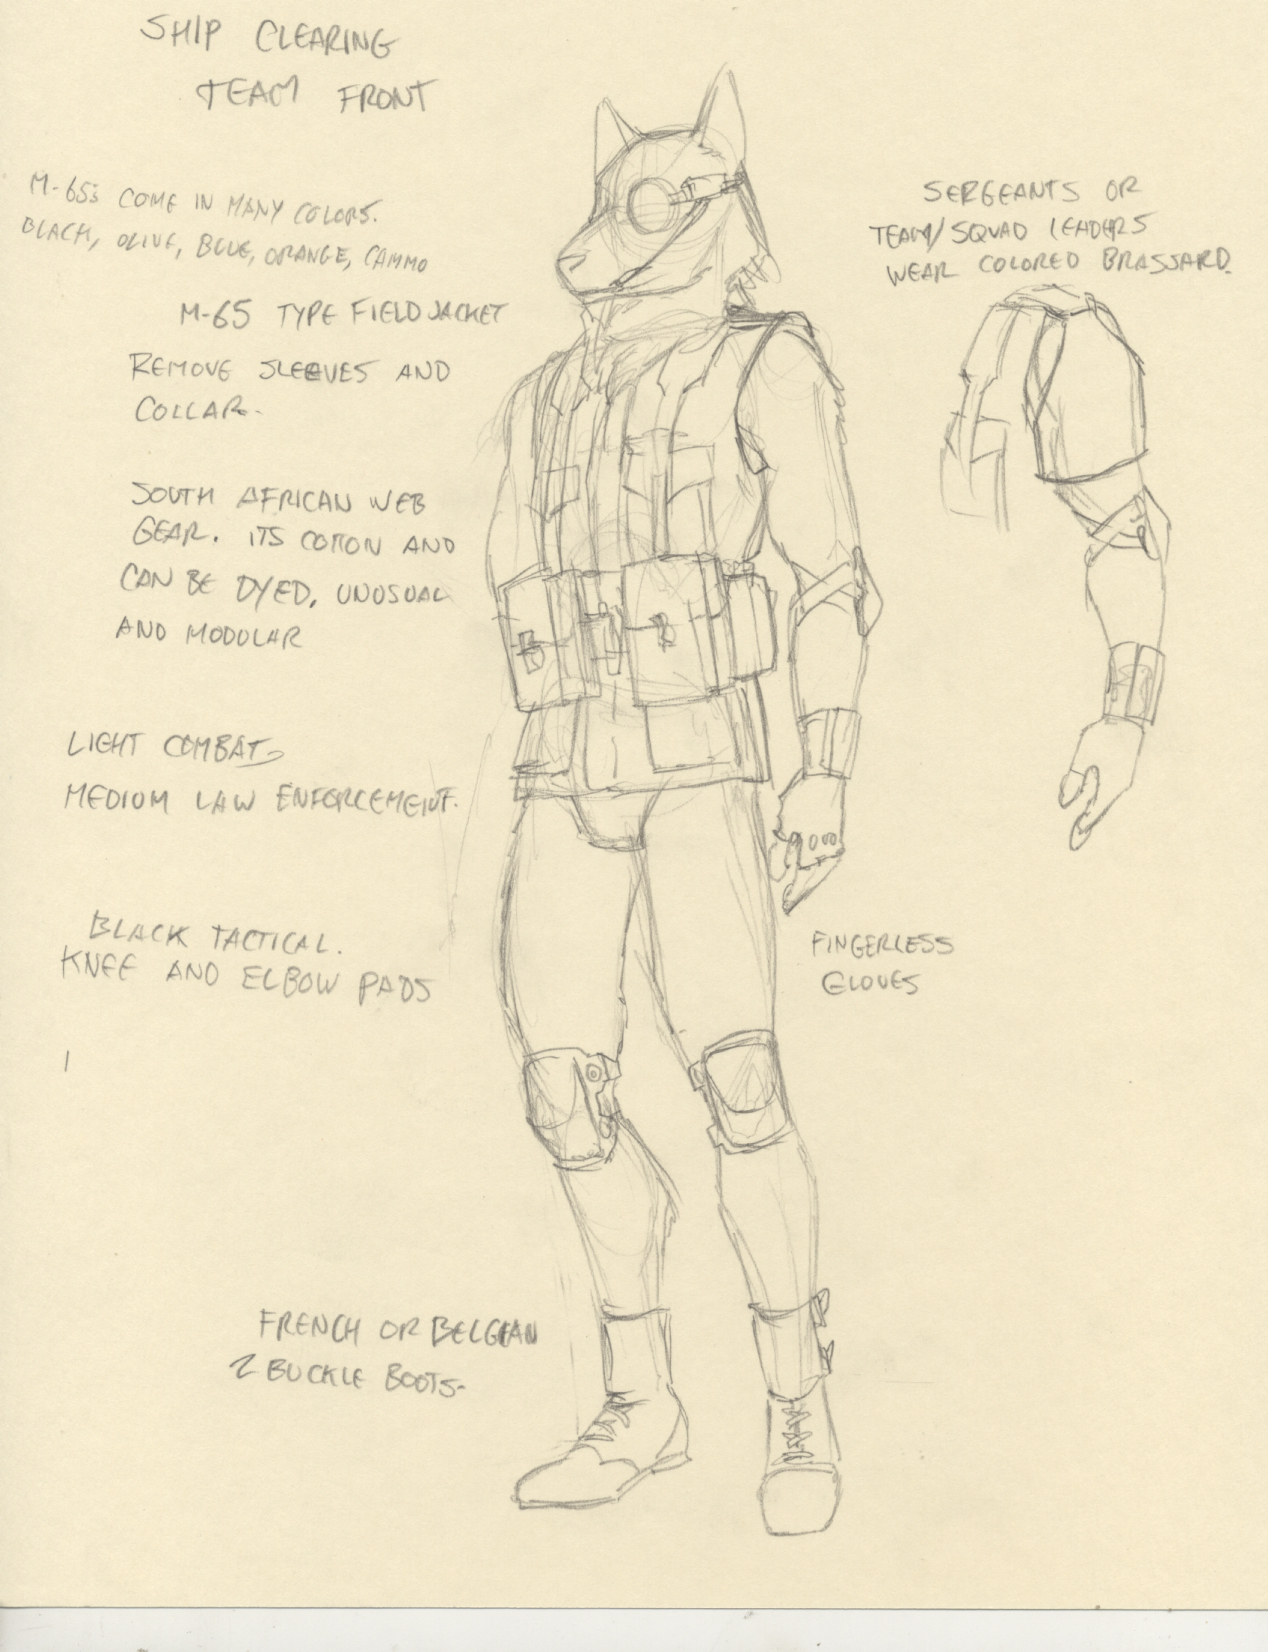 SHIP CLEARING
TEAM FRONT
M-65s COME IN MANY COLORS.
BLACK, OLIVE, BLUE, ORANGE, CAMMO
M-65 TYPE FIELD JACKET
REMOVE SLEEVES AND
COLLAR.
SOUTH AFRICAN WEB
GEAR. ITS COTTON AND
CAN BE DYED, UNUSUAL
AND MODULAR
LIGHT COMBAT,
MEDIUM LAW ENFORCEMENT.
BLACK TACTICAL.
KNEE AND ELBOW PADS
FRENCH OR BELGIAN
2 BUCKLE BOOTS.
SERGEANTS OR
TEAM/SQUAD LEADERS
WEAR COLORED BRASSARD.
FINGERLESS
GLOVES